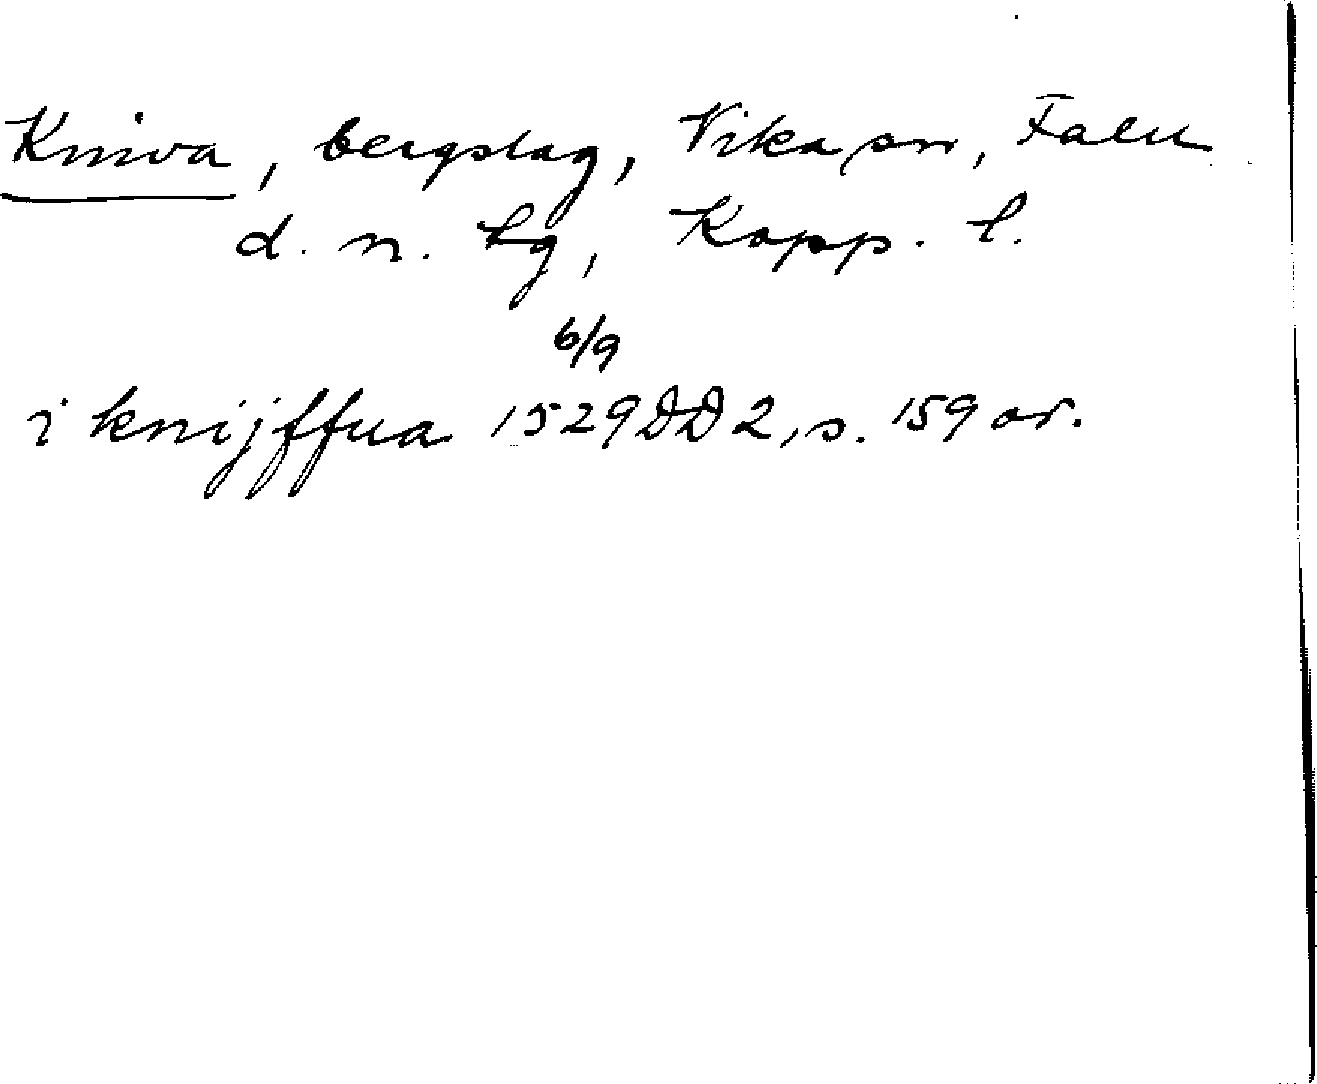 Kniva, bergslag, Vika sn, Falu
d. n. hg, Kopp. l.
6/9
i knijffua 1529 DD 2, s. 159 or.